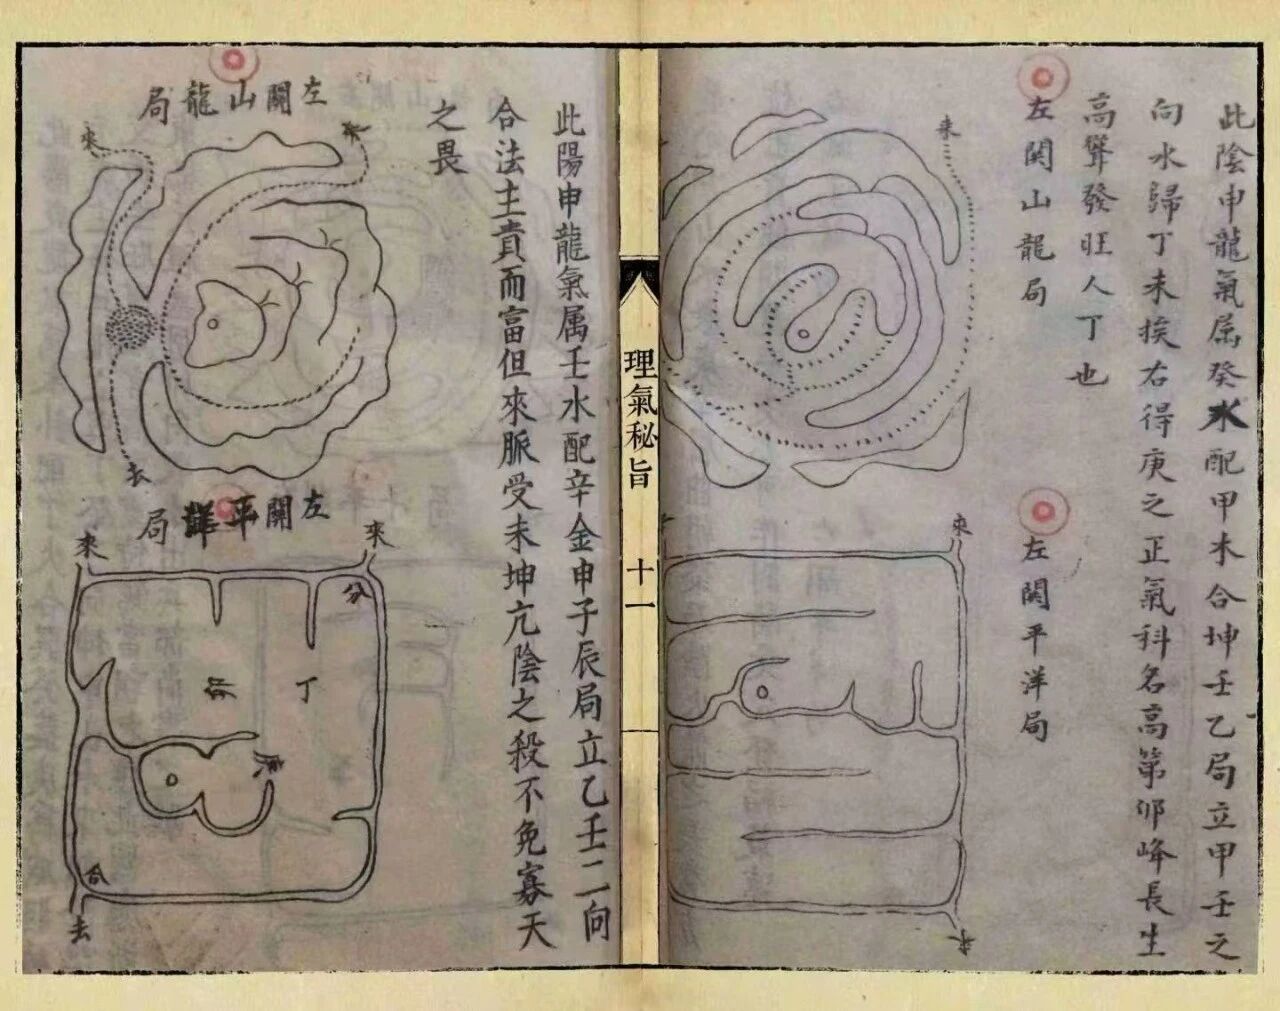 此陰申龍氣属癸水配甲木合坤壬乙局立甲壬之
向水歸丁未挨右得庚之正氣科名高第卯峰長生
高聳發旺人丁也
左関山龍局
來
左関平洋局
來
來
理氣秘旨
十一
此陽申龍氣属壬水配辛金申子辰局立乙壬二向
合法主貴而富但來脈受未坤亢陰之殺不免寡夭
之畏
左関山龍局
來
來
去
左関平洋局
來
來
分
丁
合
去